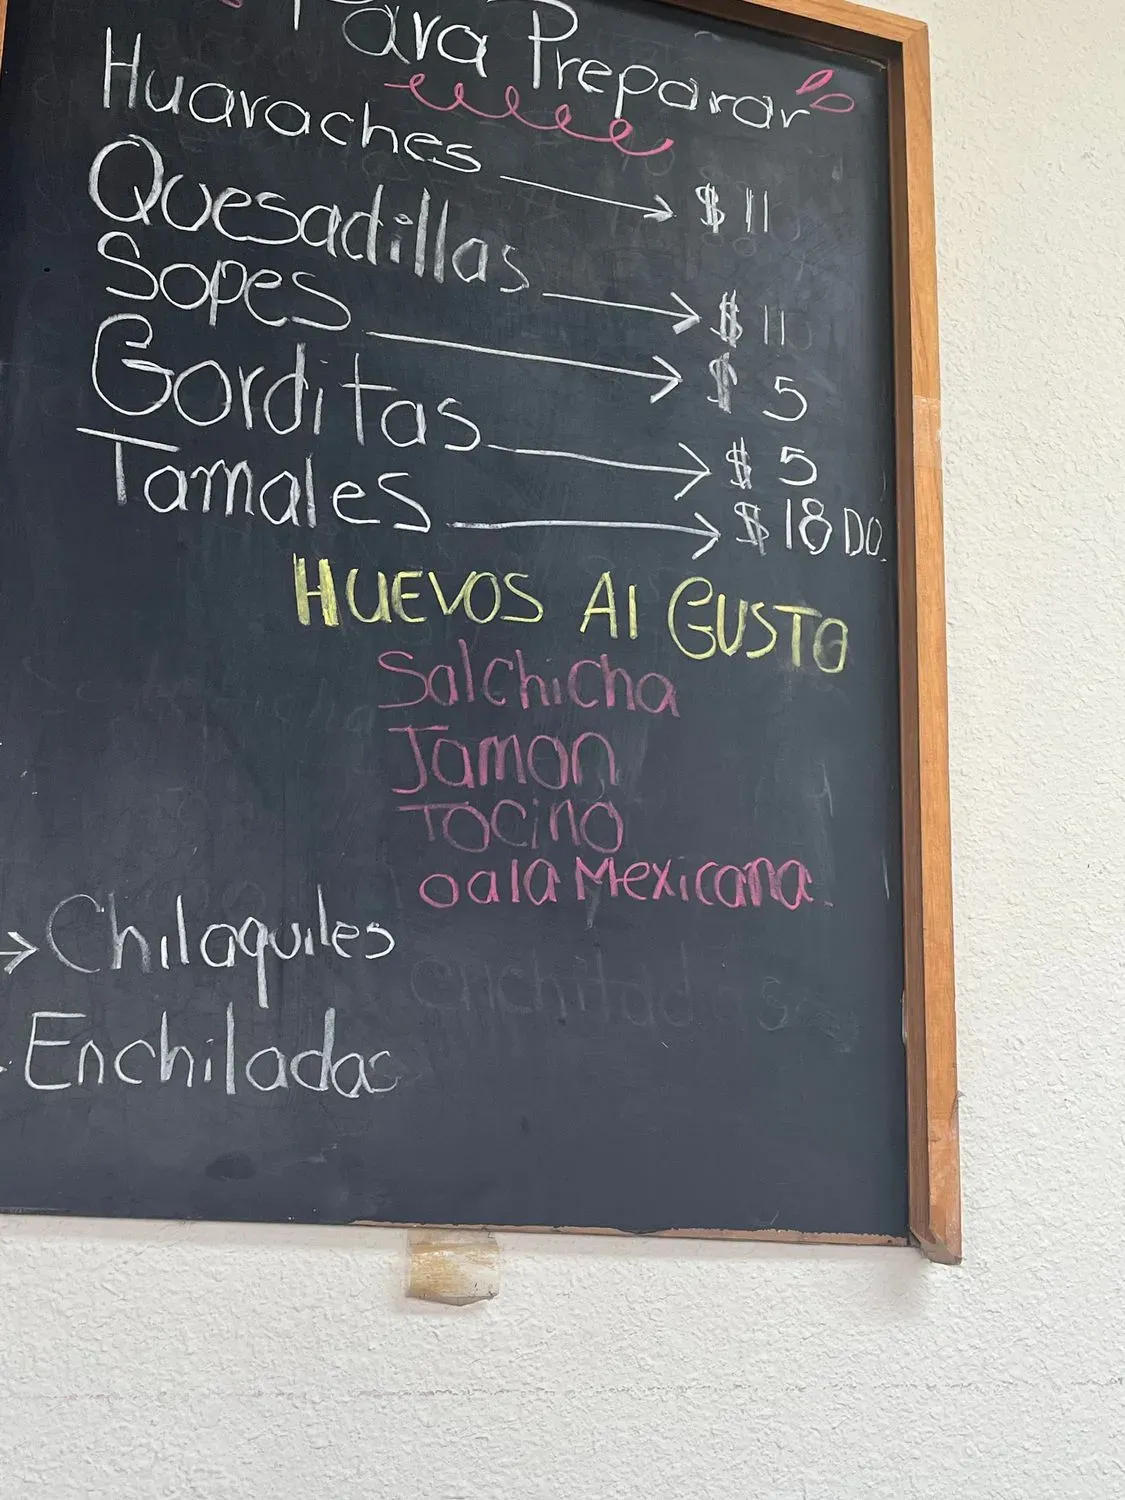 Para Preparar
Huaraches → $11
Quesadillas → $11
Sopes → $5
Gorditas → $5
Tamales → $18 DO.
HUEVOS Al GUSTO
Salchicha
Jamon
Tocino
o a la Mexicana.
→ Chilaquiles
Enchiladas